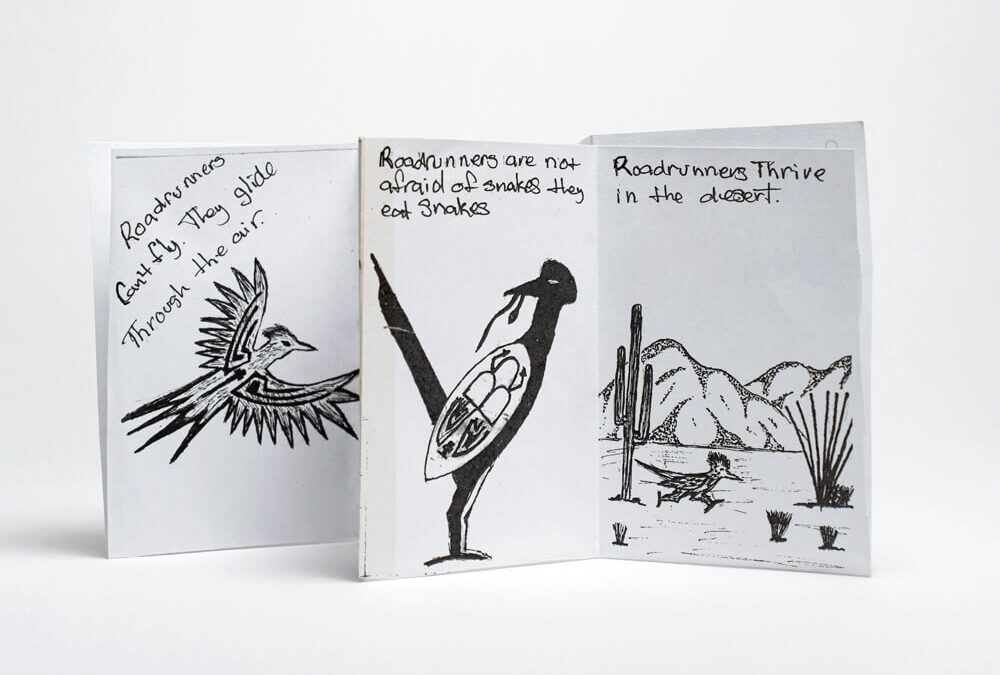 Roadrunners
Can4 fly. They glide
Through the air.
Roadrunners are not
afraid of snakes they
eat Snakes
Roadrunners Thrive
in the desert.